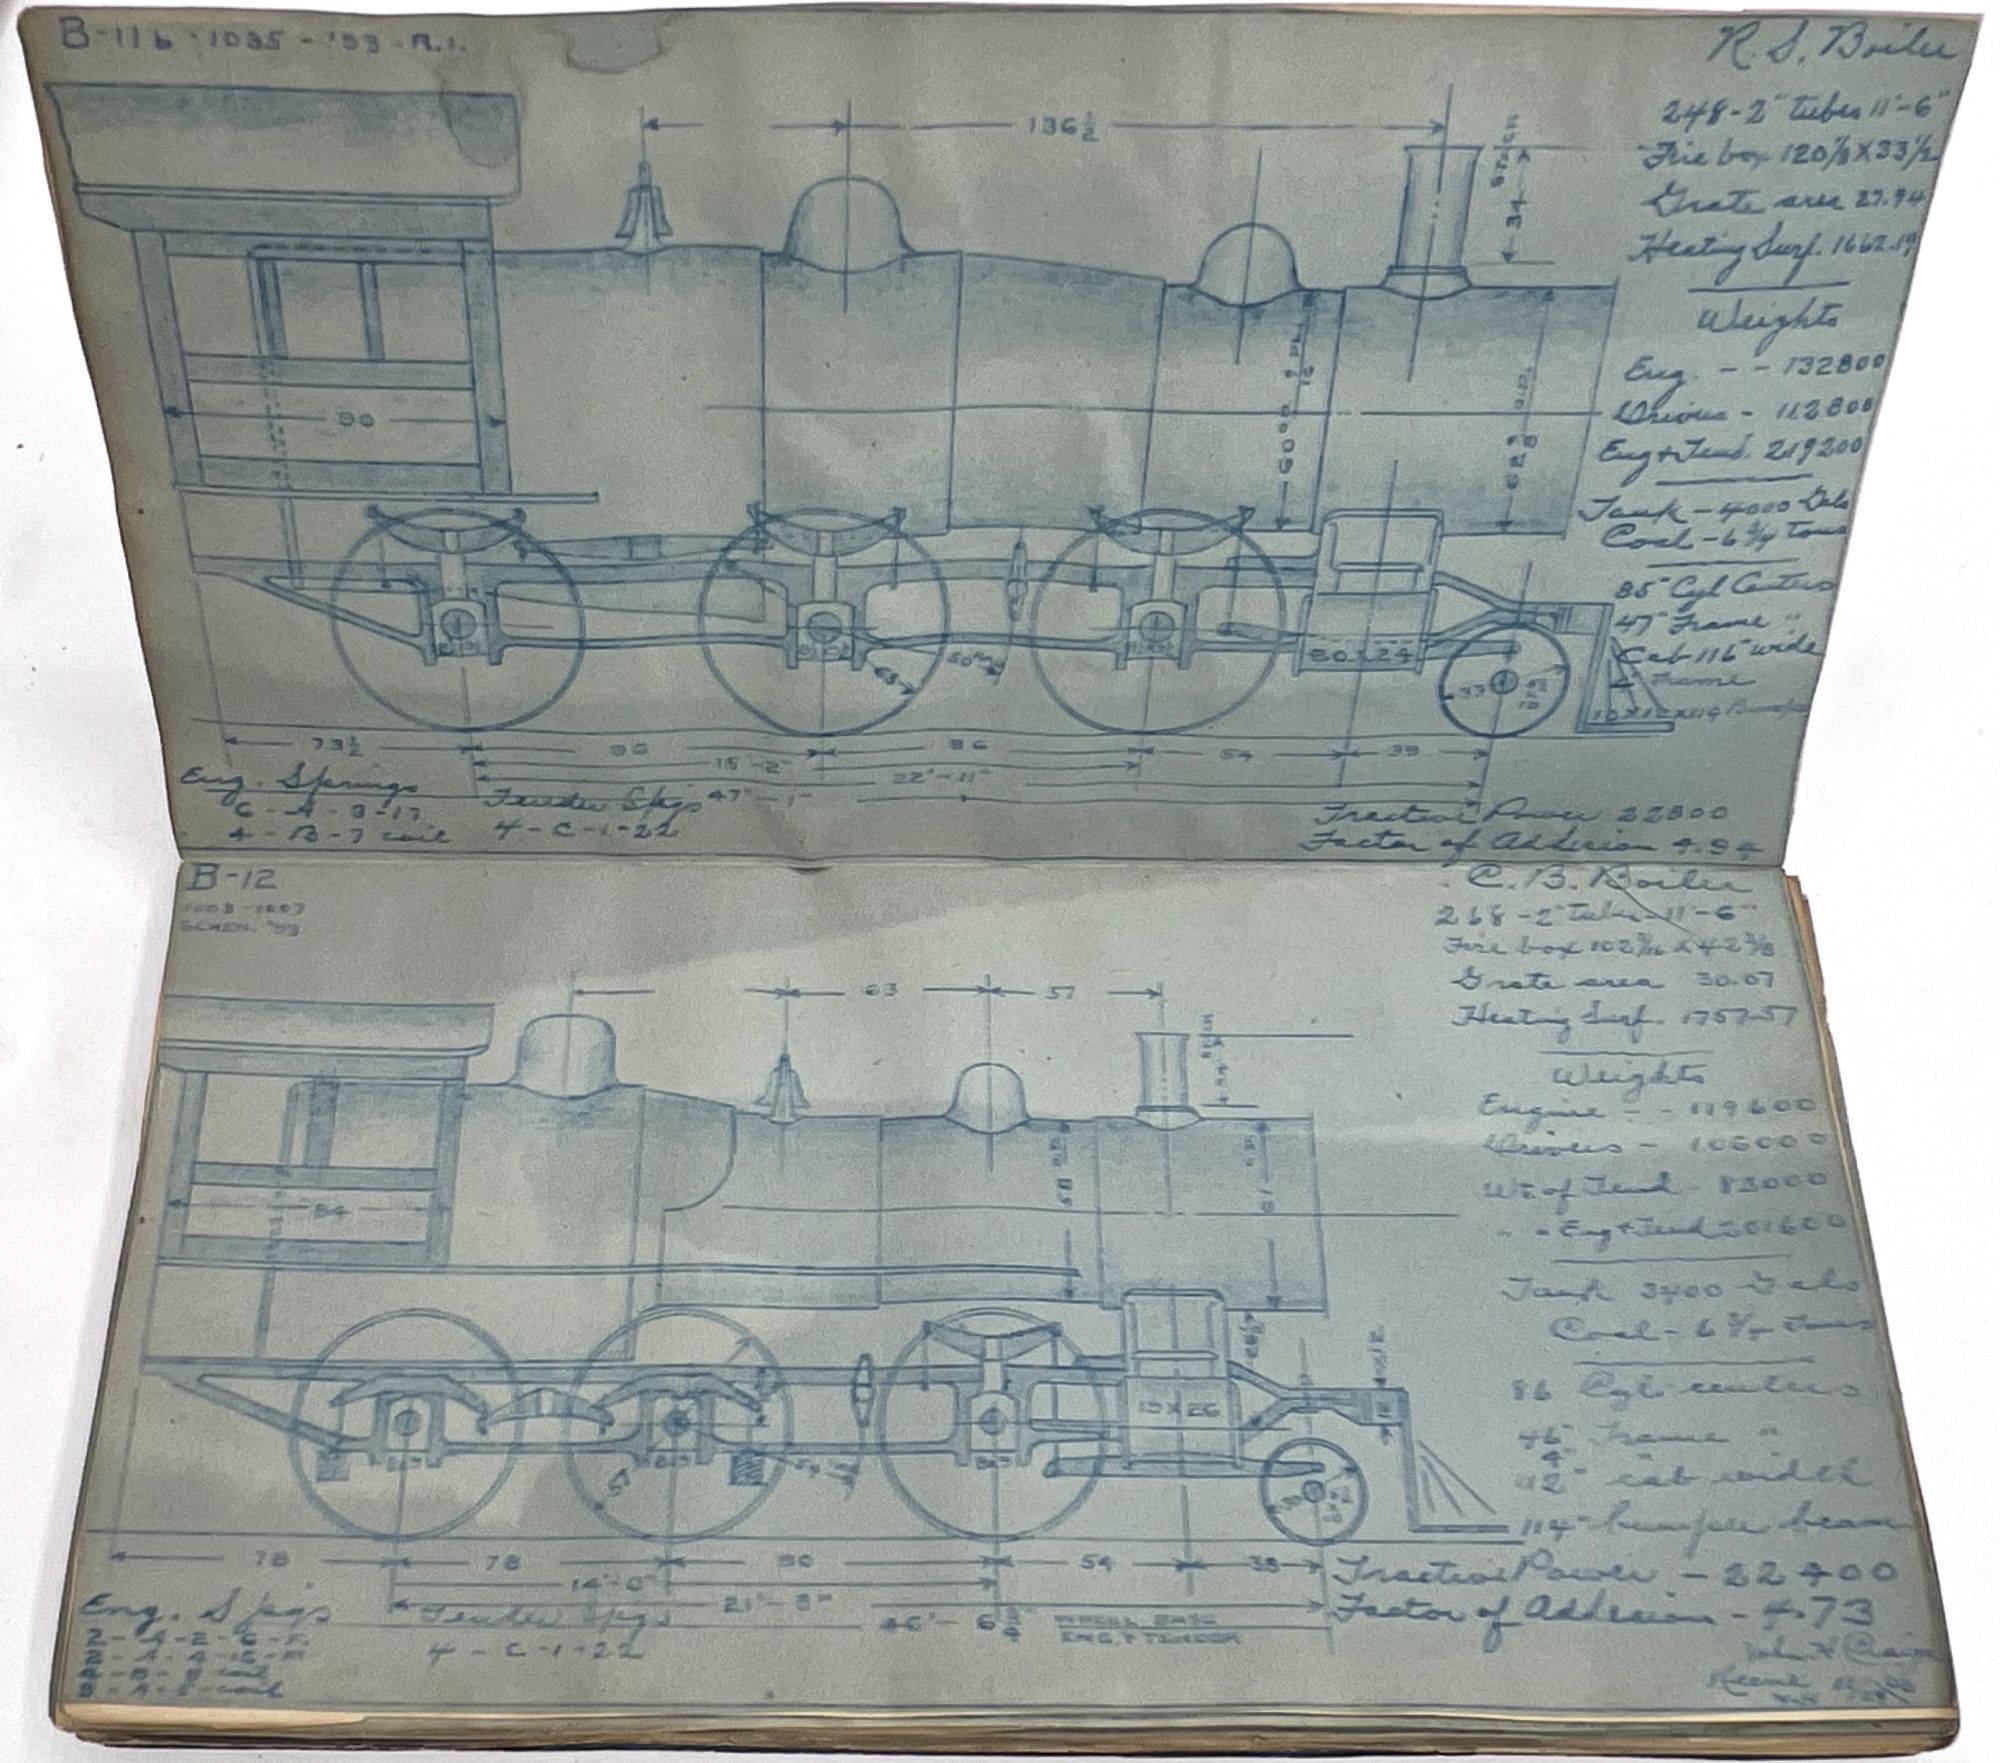 B-11b 1035 - '93 R.I.
R. S. Boiler
248-2" tubes 11'-6"
Fire box 120⅛ X 33½
Grate area 27.94
Heating Surf. 1662.19
Weights
Eng. - - 132800
Drivers - 112800
Eng + Tend. 219200
Tank - 4000 Gals
Coal - 6¾ tons
85" Cyl Centers
47" Frame "
Cab 116" wide
4" Frame
136½
STACK
34
90
20 X 24
63
33
73½
54
39
15'-2"
22'-11"
47'-1"
Eng. Springs
6-A-3-17
4-B-7 coil
Tender Spgs
4-C-1-22
Tractive Power 22800
Factor of Adhesion 4.94
B-12
SCHEN. '93
C. B. Boiler
268-2" tubes 11'-6"
Fire box 102 3/16 X 42⅜
Grate area 30.07
Heating Surf. 1757.57
Weights
Engine - - 119600
Drivers - 106000
Wt. of Tend - 82000
" - Eng + Tend 201600
Tank 3400 Gals
Coal - 6¾ tons
86 Cyl. centers
46" Frame "
4"
112" cab width
114" bumper beam
63
57
84
19 X 26
78
78
90
54
21'-8"
46'-6¾
WHEEL BASE
ENG. & TENDER
Eng. Spgs
Tender Spgs
4-C-1-22
Tractive Power - 22400
Factor of Adhesion - 4.73